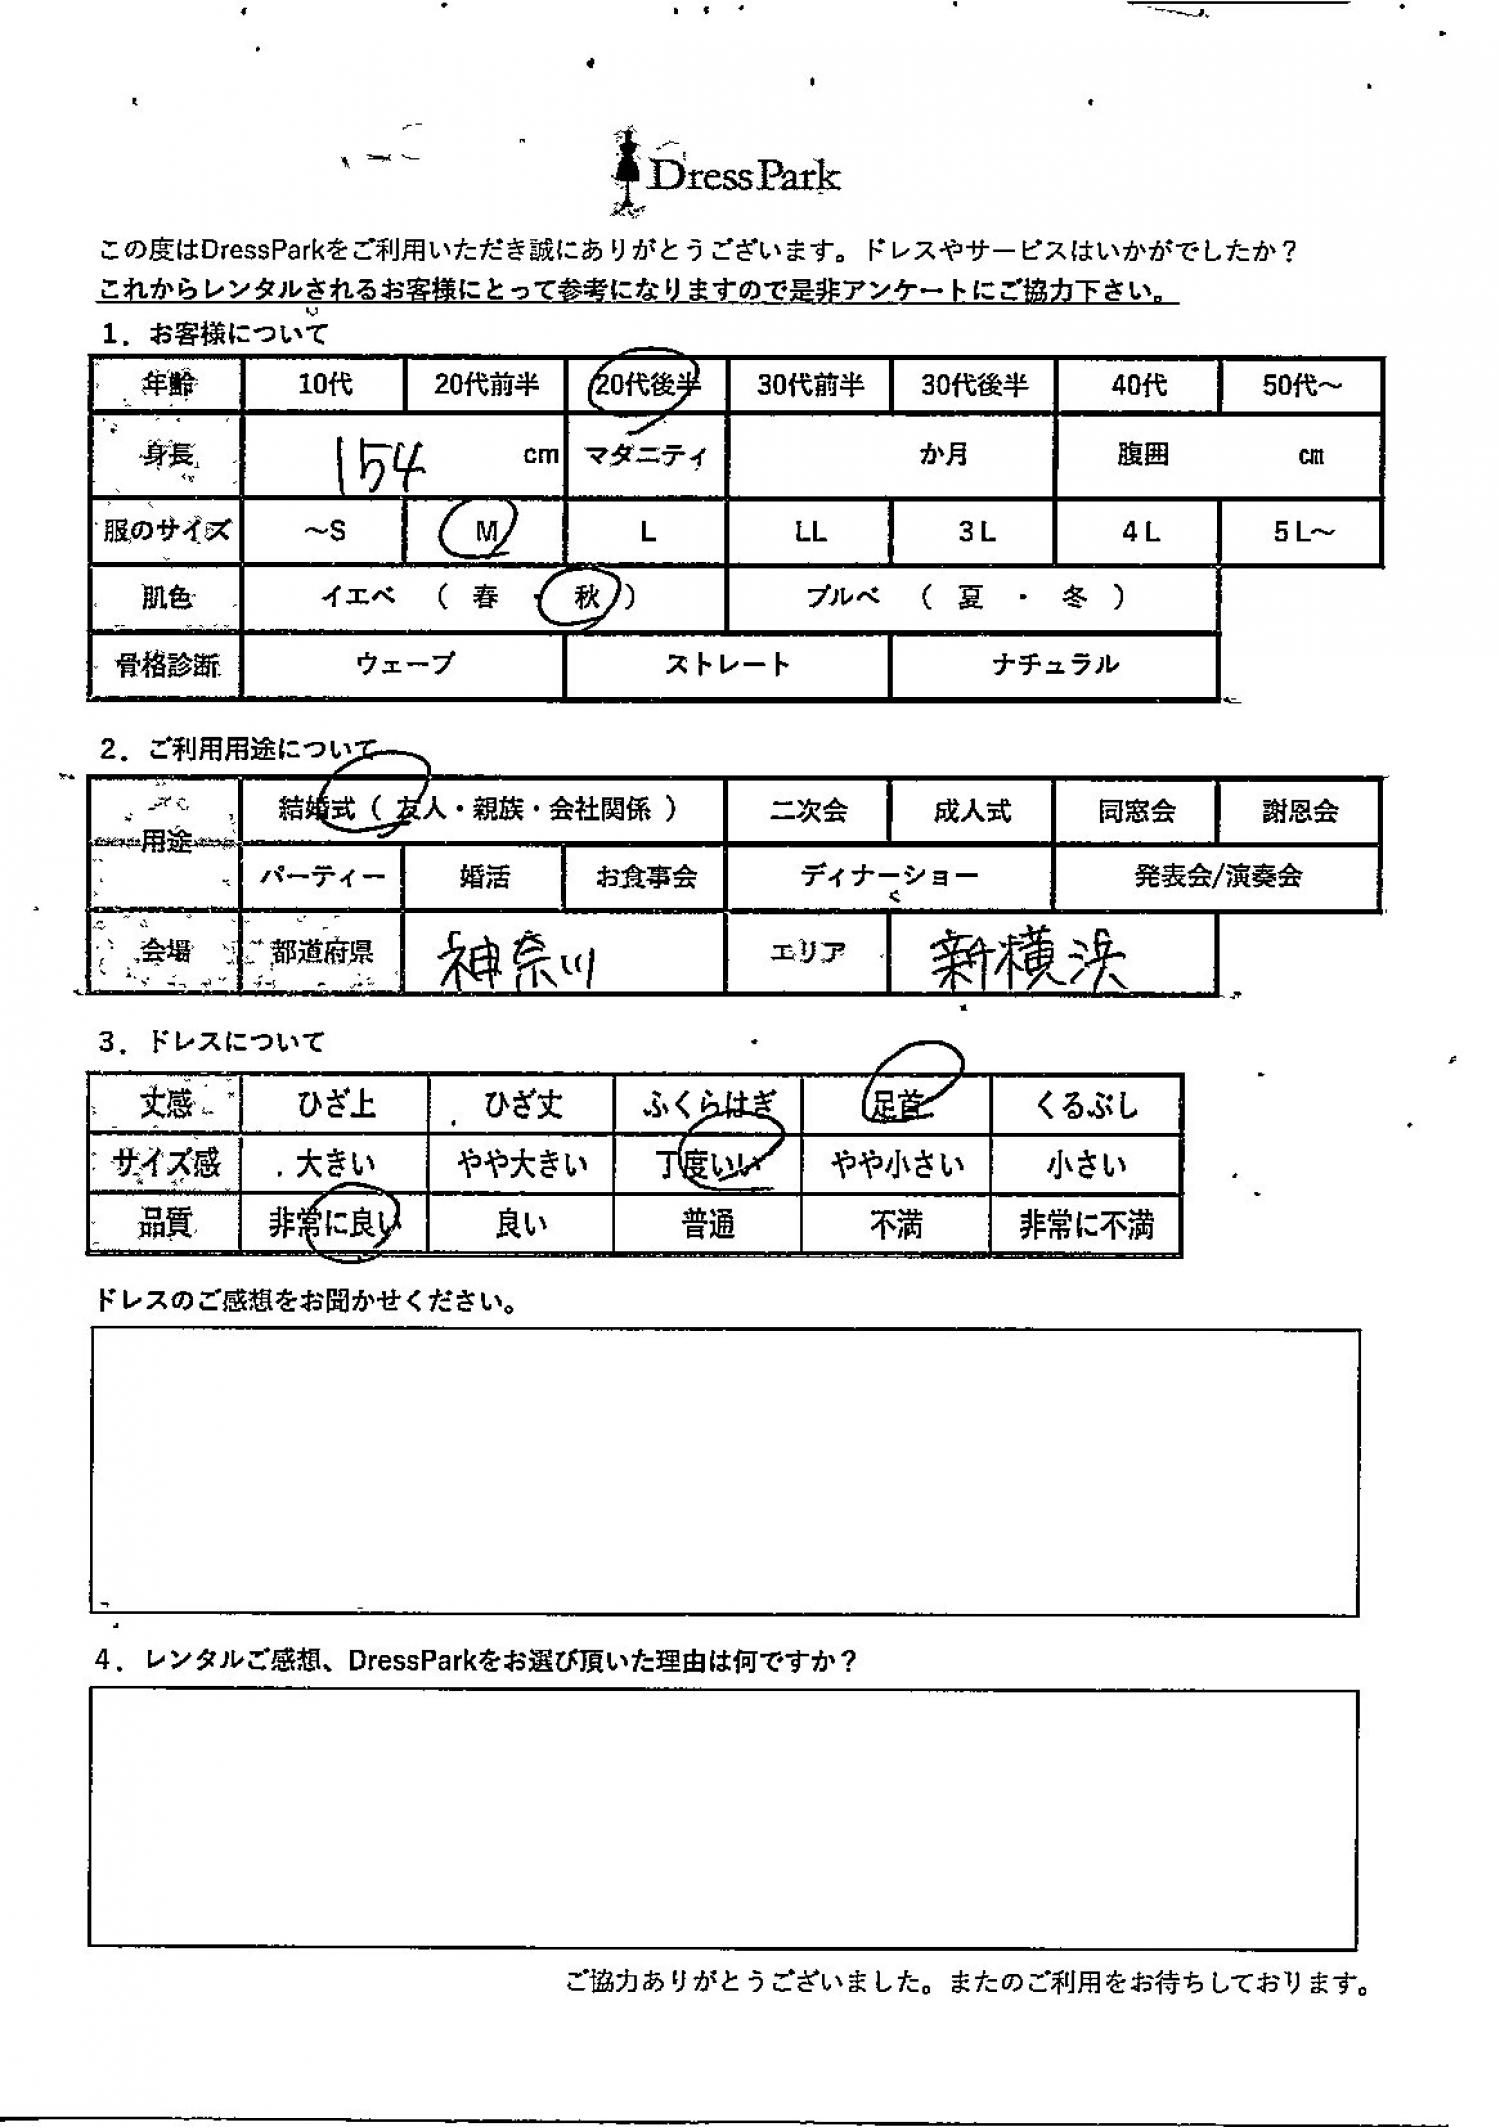 DressPark
この度はDressParkをご利用いただき誠にありがとうございます。ドレスやサービスはいかがでしたか？
これからレンタルされるお客様にとって参考になりますので是非アンケートにご協力下さい。
1．お客様について
年齢 10代 20代前半 20代後半 30代前半 30代後半 40代 50代～
身長 154 cm マタニティ か月 腹囲 cm
服のサイズ ～S M L LL 3L 4L 5L～
肌色 イエベ （ 春 ・ 秋 ） ブルベ （ 夏 ・ 冬 ）
骨格診断 ウェーブ ストレート ナチュラル
2．ご利用用途について
用途 結婚式（ 友人・親族・会社関係 ） 二次会 成人式 同窓会 謝恩会
パーティー 婚活 お食事会 ディナーショー 発表会/演奏会
会場 都道府県 神奈川 エリア 新横浜
3．ドレスについて
丈感 ひざ上 ひざ丈 ふくらはぎ 足首 くるぶし
サイズ感 大きい やや大きい 丁度いい やや小さい 小さい
品質 非常に良い 良い 普通 不満 非常に不満
ドレスのご感想をお聞かせください。
4．レンタルご感想、DressParkをお選び頂いた理由は何ですか？
ご協力ありがとうございました。またのご利用をお待ちしております。